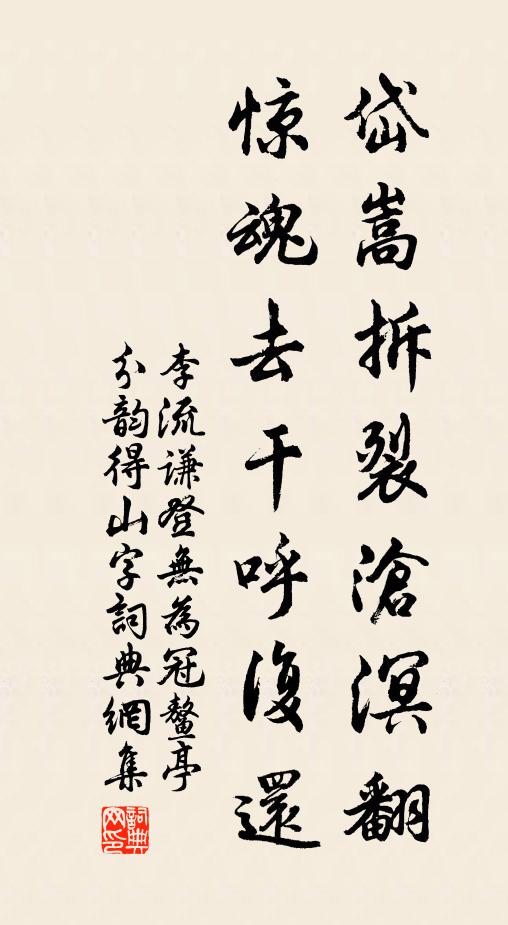 岱嵩拆裂滄溟翻
惊魂去干呼復還
李流谦登無為冠鳌亭
分韵得山字詞典網集
詞典网印